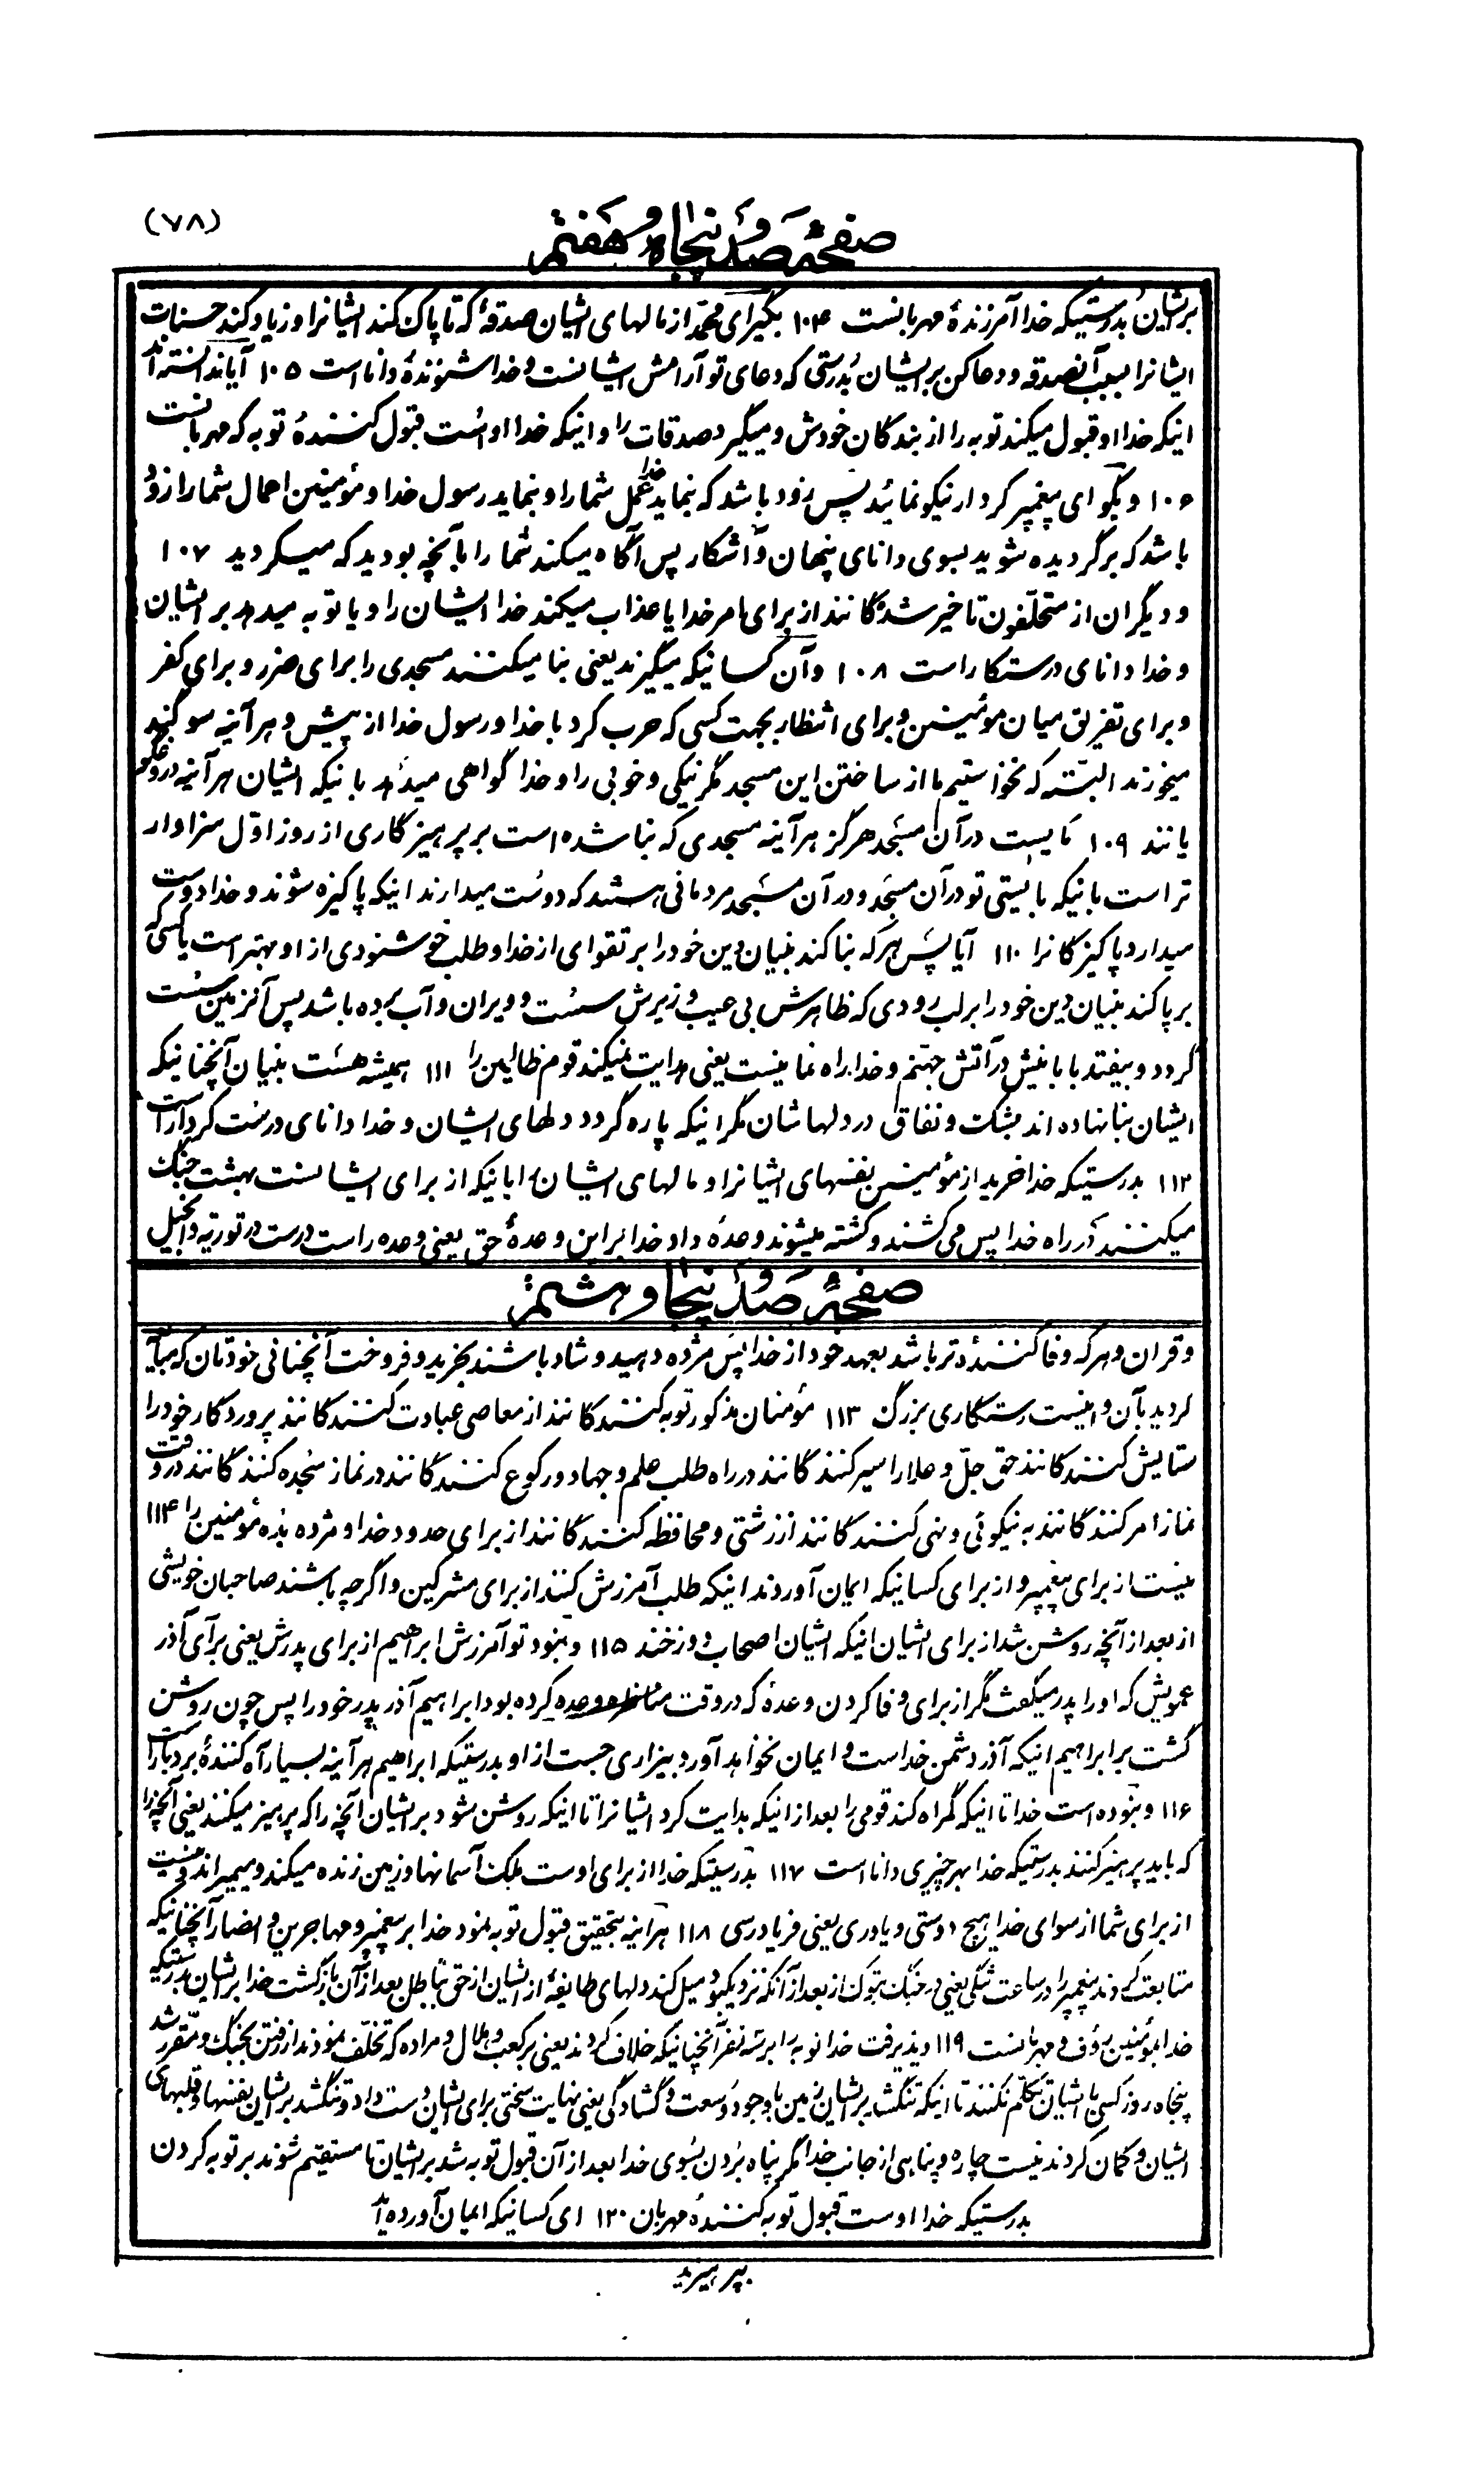 (۷۸)
صفحهٔ صد و پنجاه و هفتم
برایشان بدرستیکه خدا آمرزندهٔ مهربانست ۱۰۴ بگیر ای محمد از مالهای ایشان صدقهٔ که تا پاک کند ایشانرا و زیاد کند حسنات
ایشانرا بسبب آنصدقه و دعا کن بر ایشان بدرستی که دعای تو آرامش ایشانست و خدا شنوندهٔ داناست ۱۰۵ آیا ندانسته اند
اینکه خدا او قبول میکند توبه را از بندگان خودش و میگیرد صدقات را و اینکه خدا اوست قبول کنندهٔ توبه که مهربانست
۱۰۶ و بگو ای پیغمبر کردار نیکو نمائید پس زود باشد که بنماید خدا عمل شما را و بنماید رسول خدا و مؤمنین اعمال شما را زود
باشد که برگردیده شوید بسوی دانای پنهان و آشکار پس آگاه میکند شما را بآنچه بودید که میکردید ۱۰۷
و دیگران از متخلفون تاخیر شدگانند از برای امر خدا یا عذاب میکند خدا ایشان را و یا توبه میدهد بر ایشان
و خدا دانای درستکار است ۱۰۸ و آن کسانیکه میگیزند یعنی بنا میکنند مسجدی را برای ضرر و برای کفر
و برای تفریق میان مومنین و برای انتظار بجهت کسی که حرب کرد با خدا و رسول خدا از پیش و هر آینه سوگند
میخورند البته که نخواستیم ما از ساختن این مسجد مگر نیکی و خوبی را و خدا گواهی میدهد بانیکه ایشان هر آینه دروغگو
یانند ۱۰۹ نایست در آن مسجد هرگز هر آینه مسجدی که بنا شده است بر پرهیزگاری از روز اول سزاوار
تر است بانیکه بایستی تو در آن مسجد و در آن مسجد مردمانی هستند که دوست میدارند اینکه پاکیزه شوند و خدا دوست
میدارد پاکیزگانرا ۱۱۰ آیا پس هر که بنا کند بنیان دین خود را بر تقوای از خدا و طلب خوشنودی از او بهتر است یا کسی که
بر پا کند بنیان دین خود را بر لب رودی که ظاهرش بی عیب و زیرش سست و ویران و آب برده باشد پس آنزمین سست
گردد و بیفتد با بانیش در آتش جهنم و خدا راه نما نیست یعنی هدایت نمیکند قوم ظالمین را ۱۱۱ همیشه هست بنیان آنچنانیکه
ایشان بنا نهاده اند بشک و نفاق در دلهاشان مگر اینکه پاره گردد دلهای ایشان و خدا دانای درست کردار است
۱۱۲ بدرستیکه خدا خرید از مؤمنین نفسهای ایشانرا و مالهای ایشان را بانیکه از برای ایشانست بهشت جنگ
میکنند در راه خدا پس می کشند و کشته میشوند وعده داد خدا بر این وعدهٔ حق یعنی وعده راست درست در توریة و انجیل
صفحهٔ صد و پنجاه و هشتم
و قران و هر که وفا کنندهٔ تر باشد بعهد خود از خدا پس مژده دهید و شاد باشند بخرید و فروخت آنچنانی خودتان که مبایعه
کردید بآن و اینست رستگاری بزرگ ۱۱۳ مؤمنان مذکور توبه کنندگانند از معاصی عبادت کنندگانند پروردگار خود را
ستایش کنندگانند حق جل و علا را سیر کنندگانند در راه طلب علم و جهاد و رکوع کنندگانند در نماز سجده کنندگانند در وقت
نماز امر کنندگانند به نیکوئی و نهی کنندگانند از زشتی و محافظه کنندگانند از برای حدود خدا و مژده بده مؤمنین را ۱۱۴
نیست از برای پیغمبر و از برای کسانیکه ایمان آوردند اینکه طلب آمرزش کنند از برای مشرکین و اگرچه باشند صاحبان خویشی
از بعد از آنچه روشن شد از برای ایشان اینکه ایشان اصحاب دوزخند ۱۱۵ و نبود تو آمرزش ابراهیم از برای پدرش یعنی برآی آذر
عمویش که او را پدر میگفت مگر از برای وفا کردن وعدهٔ که در وقت مناظره وعده کرده بود ابراهیم آذر پدر خود را پس چون روشن
گشت بر ابراهیم اینکه آذر دشمن خداست و ایمان نخواهد آورد بیزاری جست از او بدرستیکه ابراهیم هر آینه بسیار آه کنندهٔ بردبار است
۱۱۶ و نبوده است خدا تا اینکه گمراه کند قومی را بعد از اینکه هدایت کرد ایشانرا تا اینکه روشن شود بر ایشان آنچه را که پرهیز میکنند یعنی آنچه را
که باید پرهیز کنند بدرستیکه خدا بهر چیزی دانا است ۱۱۷ بدرستیکه خدا از برای اوست ملک آسمانها و زمین زنده میکند و میمیراند و نیست
از برای شما از سوای خدا هیچ دوستی و یاوری یعنی فریادرسی ۱۱۸ هر اینه بتحقیق قبول توبه نمود خدا بر پیغمبر و مهاجرین و انصار آنچنانیکه
متابعت کردند پیغمبر را در ساعت تنگی یعنی در جنگ تبوک از بعد از آنکه نزدیکبود میل کند دلهای طایفهٔ از ایشان از حق بباطل بعد از آن بازگشت خدا بر ایشان بدرستیکه
خدا بمؤمنین رؤف و مهربانست ۱۱۹ و پذیرفت خدا توبه را بر سه نفر آنچنانیکه خلاف کردند یعنی بر کعب و هلال و مراده که تخلف نمودند از رفتن بجنگ و مقرر شد
پنجاه روز کسی با ایشان تکلم نکنند تا اینکه تنگ شد بر ایشان زمین با وجود وسعت و گشادگی یعنی نهایت سختی برای ایشان دست داد و تنگ شد بر ایشان نفسها و قلبهای
ایشان و گمان کردند نیست چاره و پناهی از جانب خدا مگر پناه بردن بسوی خدا بعد از آن قبول توبه شد بر ایشان تا مستقیم شوند بر توبه کردن
بدرستیکه خدا اوست قبول توبه کنندهٔ مهربان ۱۲۰ ای کسانیکه ایمان آورده اید
بپرهیزید